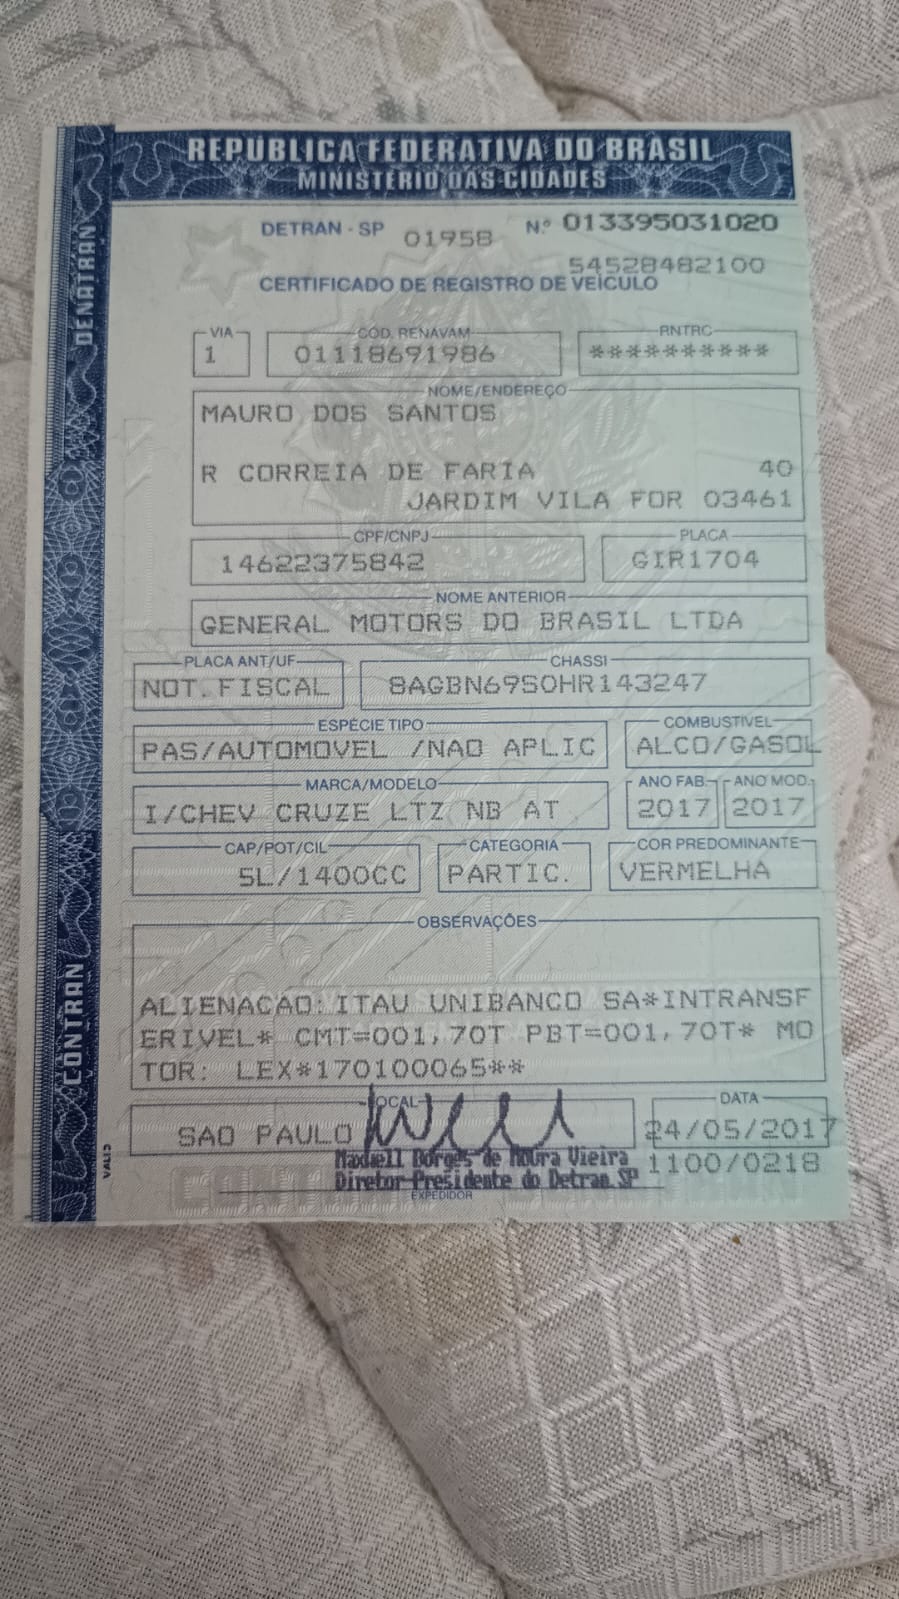 REPÚBLICA FEDERATIVA DO BRASIL
MINISTÉRIO DAS CIDADES
DENATRAN
DETRAN - SP 01958 N.º 013395031020
54528482100
CERTIFICADO DE REGISTRO DE VEÍCULO
VIA CÓD. RENAVAM RNTRC
1 01118691986 **********
NOME/ENDEREÇO
MAURO DOS SANTOS
R CORREIA DE FARIA 40
JARDIM VILA FOR 03461
CPF/CNPJ PLACA
14622375842 GIR1704
NOME ANTERIOR
GENERAL MOTORS DO BRASIL LTDA
PLACA ANT/UF CHASSI
NOT.FISCAL 8AGBN69S0HR143247
ESPÉCIE TIPO COMBUSTÍVEL
PAS/AUTOMOVEL /NAO APLIC ALCO/GASOL
MARCA/MODELO ANO FAB. ANO MOD.
I/CHEV CRUZE LTZ NB AT 2017 2017
CAP/POT/CIL CATEGORIA COR PREDOMINANTE
5L/1400CC PARTIC. VERMELHA
OBSERVAÇÕES
ALIENACAO: ITAU UNIBANCO SA*INTRANSF
ERIVEL* CMT=001,70T PBT=001,70T* MO
TOR: LEX*170100065**
CONTRAN
LOCAL DATA
SAO PAULO 24/05/2017
Maxwell Borges de Moura Vieira
1100/0218
Diretor Presidente do Detran.SP
EXPEDIDOR